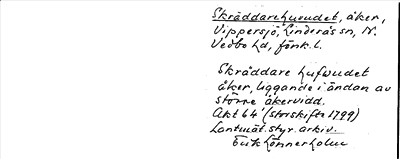 Skräddarehuvudet, åker,
Vippersjö, Linderås sn, N.
Vedbo hd, Jönk. l.
Skräddare hufwudet
åker, liggande i ändan av
större åkervidd.
Akt 64 (storskifte 1799)
Lantmät.styr. arkiv.
Erik Lönnerholm